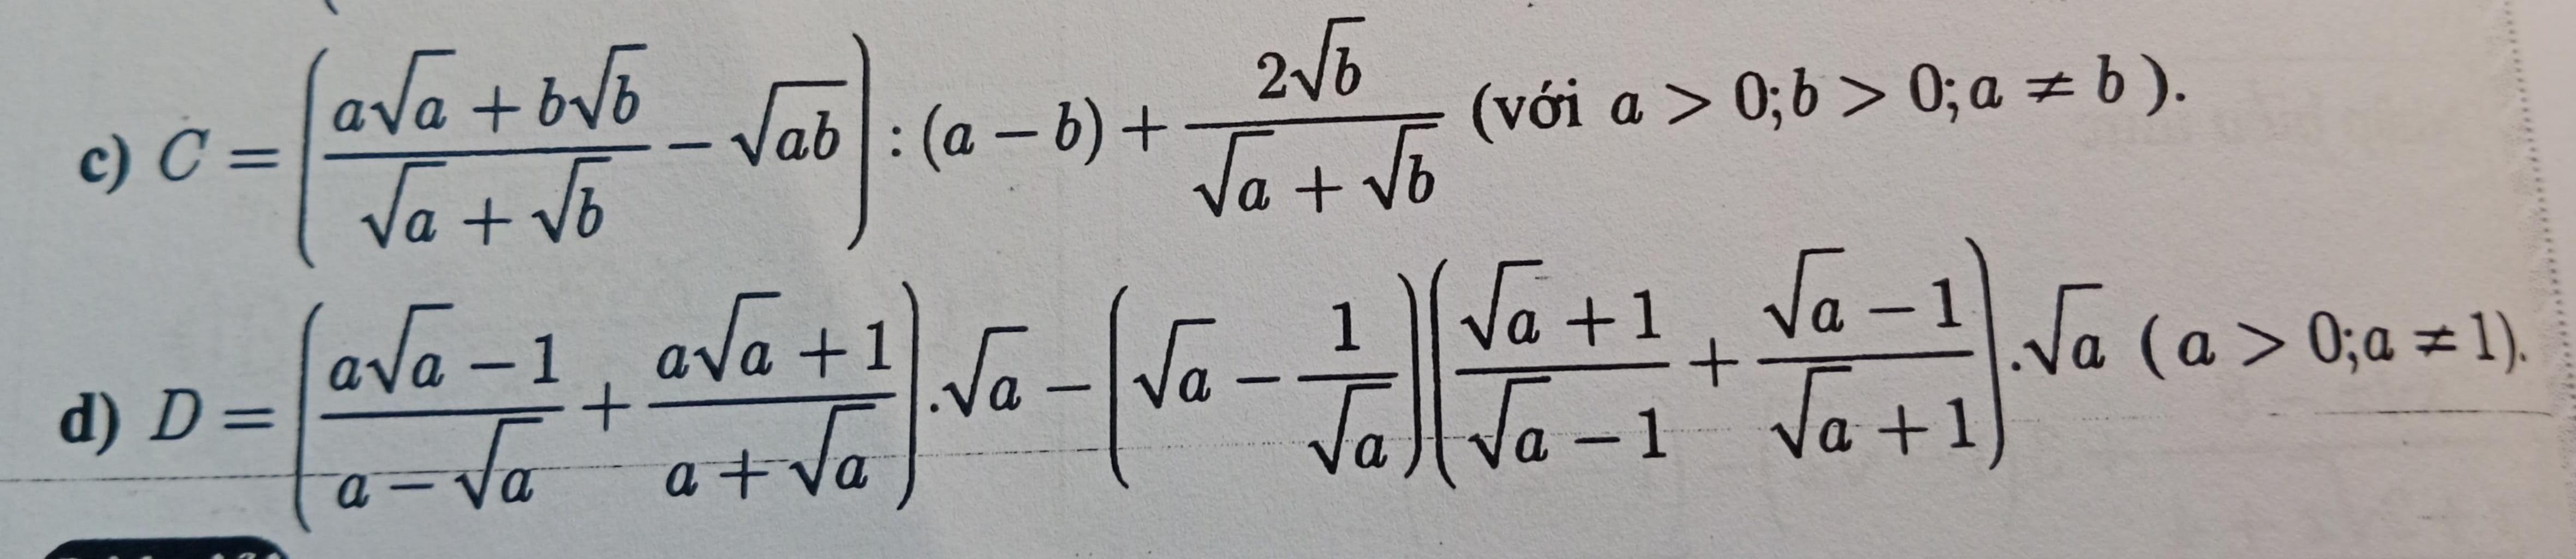 c) $C = \left(\dfrac{a\sqrt{a} + b\sqrt{b}}{\sqrt{a} + \sqrt{b}} - \sqrt{ab}\right) : (a - b) + \dfrac{2\sqrt{b}}{\sqrt{a} + \sqrt{b}}$ (với $a > 0; b > 0; a \neq b$ ).
d) $D = \left(\dfrac{a\sqrt{a} - 1}{a - \sqrt{a}} + \dfrac{a\sqrt{a} + 1}{a + \sqrt{a}}\right).\sqrt{a} - \left(\sqrt{a} - \dfrac{1}{\sqrt{a}}\right)\left(\dfrac{\sqrt{a} + 1}{\sqrt{a} - 1} + \dfrac{\sqrt{a} - 1}{\sqrt{a} + 1}\right).\sqrt{a}$ ( $a > 0; a \neq 1$).